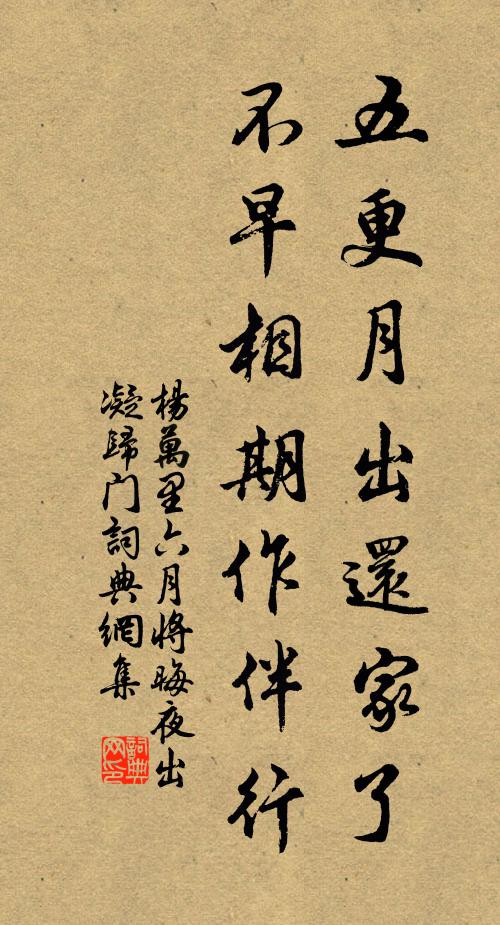 五更月出還家了
不早相期作伴行
楊萬里六月將晦夜出
凝歸门詞典網集
詞典网印